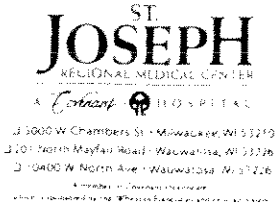 ST.
JOSEPH
REGIONAL MEDICAL CENTER
A Covenant HOSPITAL
5000 W Chambers St • Milwaukee, WI 53210
201 North Mayfair Road • Wauwatosa, WI 53226
10400 W North Ave • Wauwatosa, WI 53226
A member of Covenant Healthcare